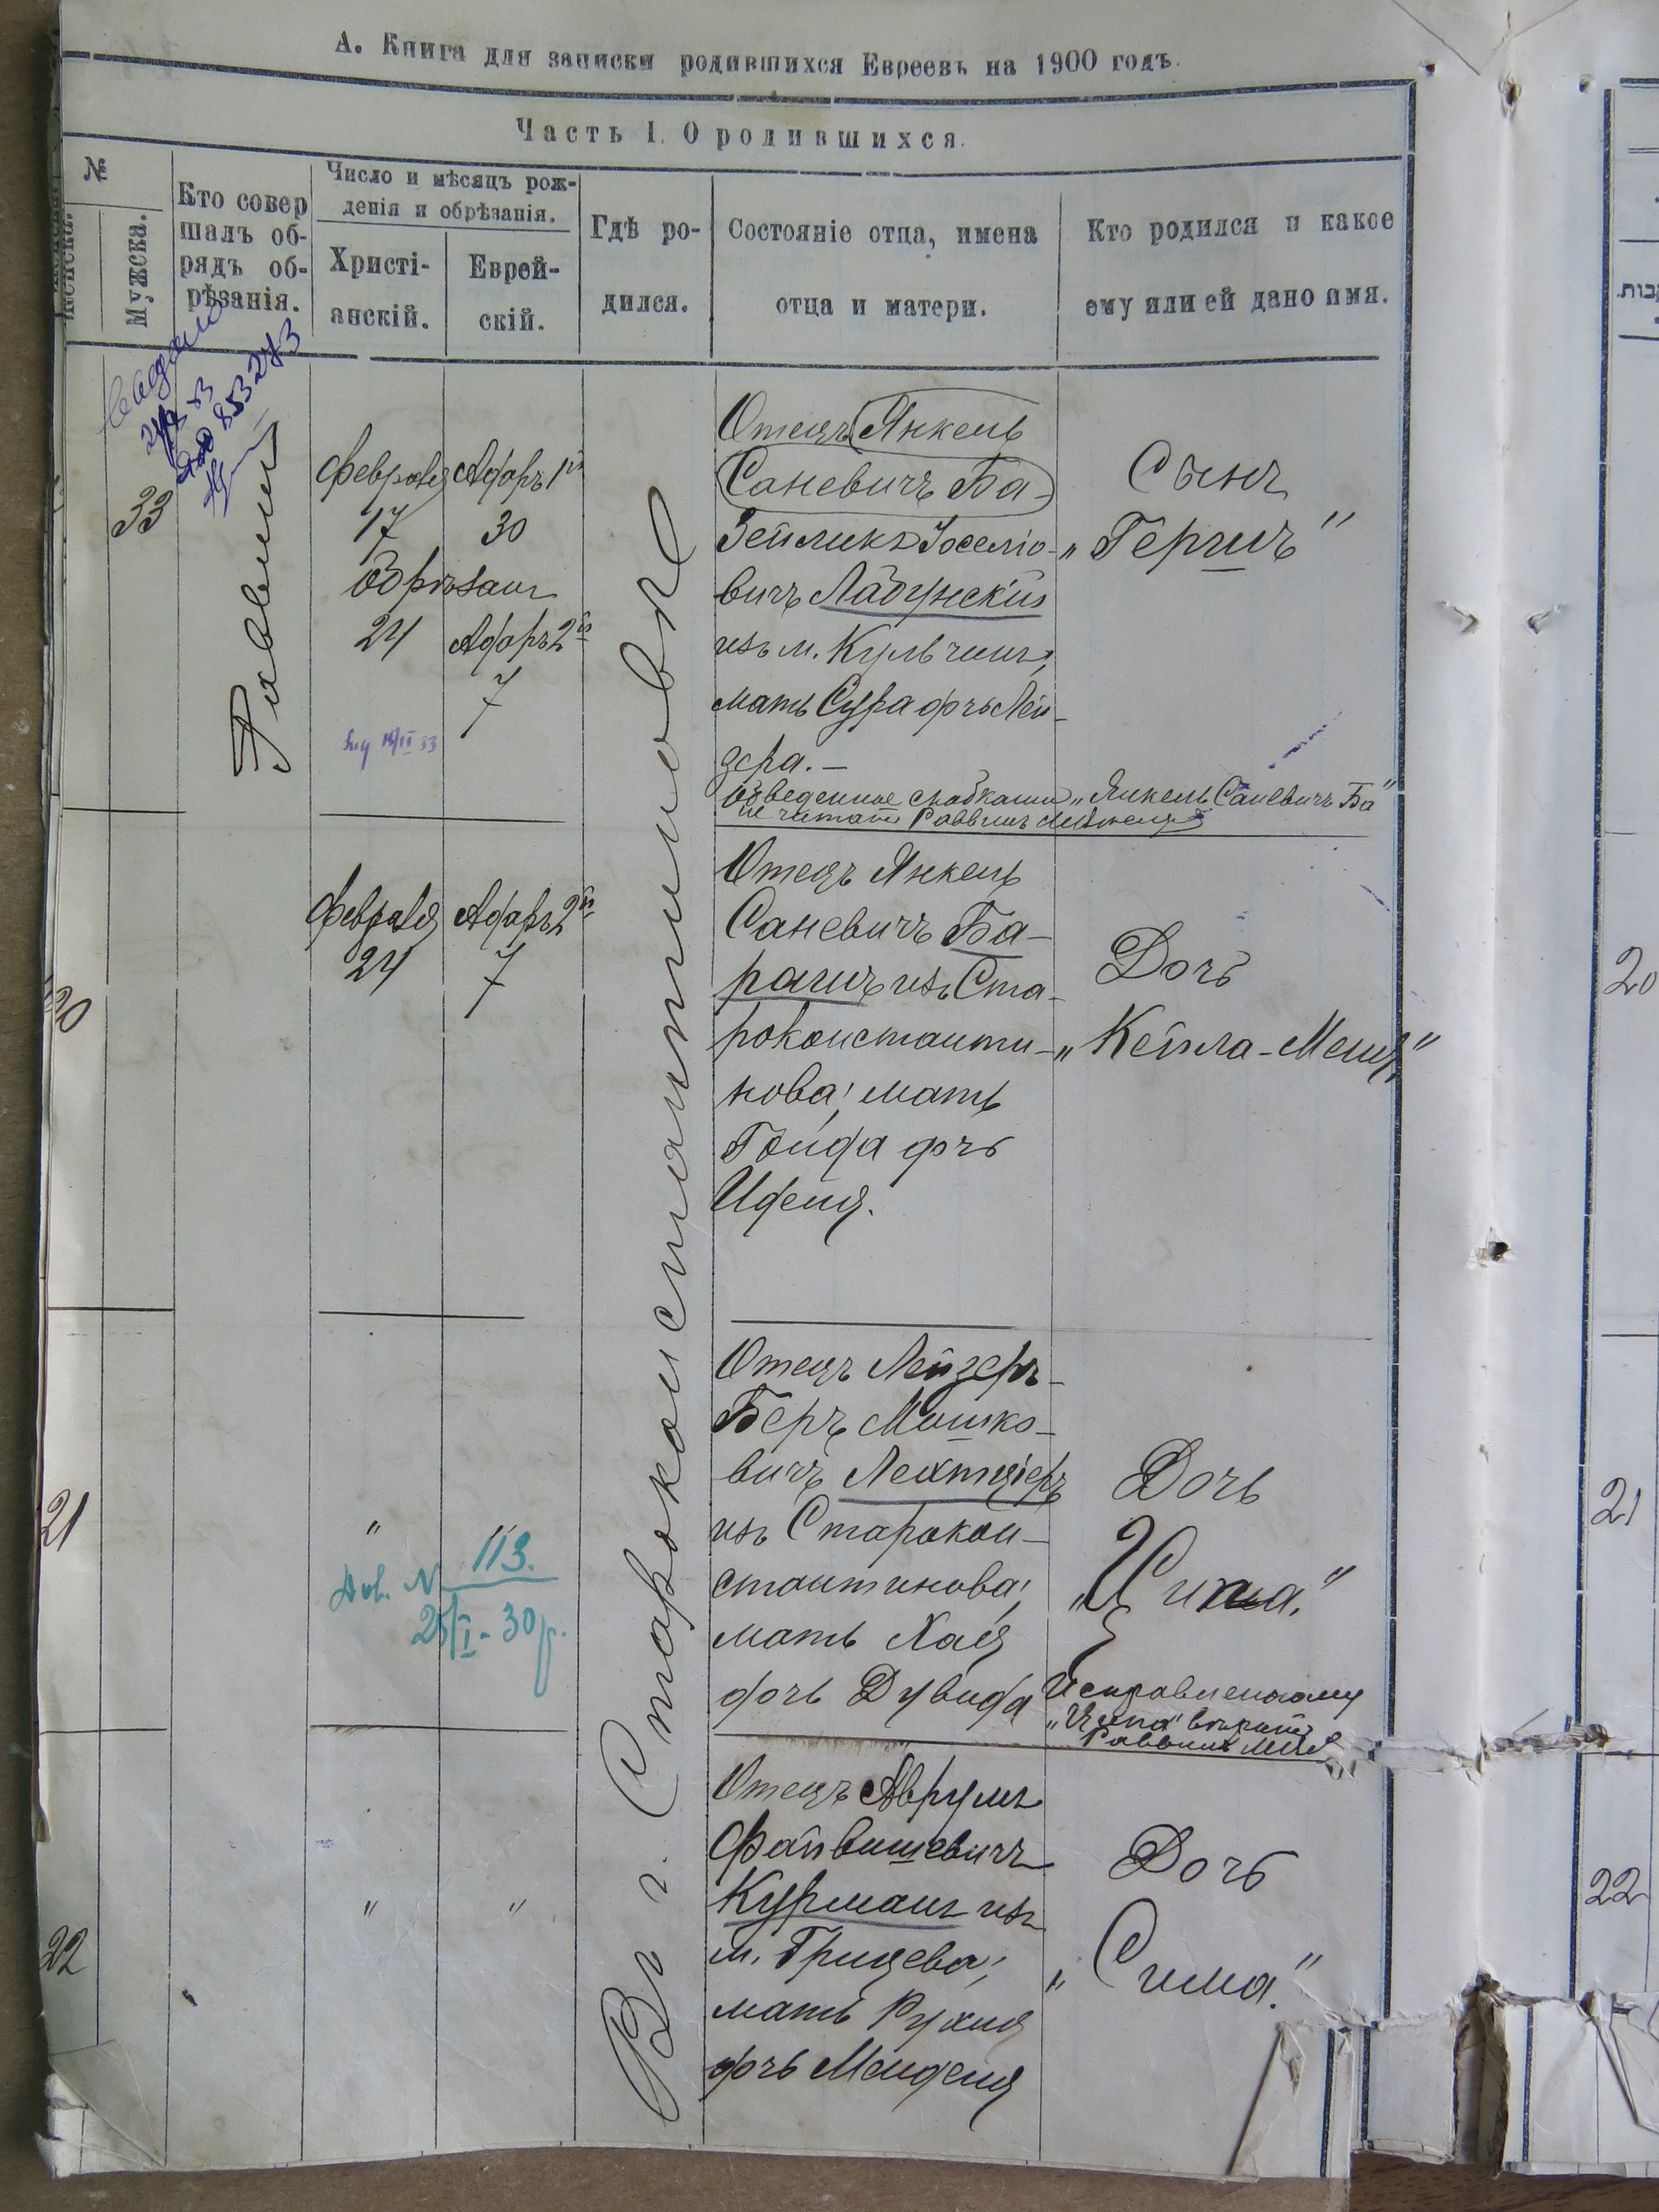 А. Книга для записки родившихся Евреевъ на 1900 годъ.
Часть I. О родившихся.
№
Женска.
Мужска.
Кто совер
шалъ об-
рядъ об-
рѣзанія.
Число и мѣсяцъ рож-
денія и обрѣзанія.
Христі-
анскій.
Еврей-
скій.
Гдѣ ро-
дился.
Состояніе отца, имена
отца и матери.
Кто родился и какое
ему или ей дано имя.
33
Раввинъ
Февраля
17
Обрѣзанъ
24
Адаръ 1й
30
Адаръ 2й
7
Въ г. Староконстантиновѣ
Отецъ Янкель
Саневичъ Ба-
Зейликъ Іоселіо-
вичъ Лабунскій
изъ м. Кульчинъ;
мать Сура дчь Лей-
зера. —
Обведенное скобками „Янкель Саневичъ Ба"
не читать Раввинъ
Сынъ
„Гершъ"
20
Февраля
24
Адаръ 2й
7
Отецъ Янкель
Саневичъ Ба-
рашъ изъ Ста-
роконстанти-
нова; мать
Гойда дчь
Иделя.
Дочь
„Кейла-Меня"
20
21
"
"
113.
25/I - 30 г.
Отецъ Лейзеръ-
Беръ Мошко-
вичъ Лехтціеръ
изъ Старокон-
стантинова;
мать Хая
дочь Дувида
Дочь
„Ципа."
Исправленному
„Ципа" вѣрить
Раввинъ
21
22
"
"
Отецъ Аврумъ
Файвишевичъ
Курманъ изъ
м. Грицева;
мать Рухля
дочь Менделя
Дочь
„Сима."
22